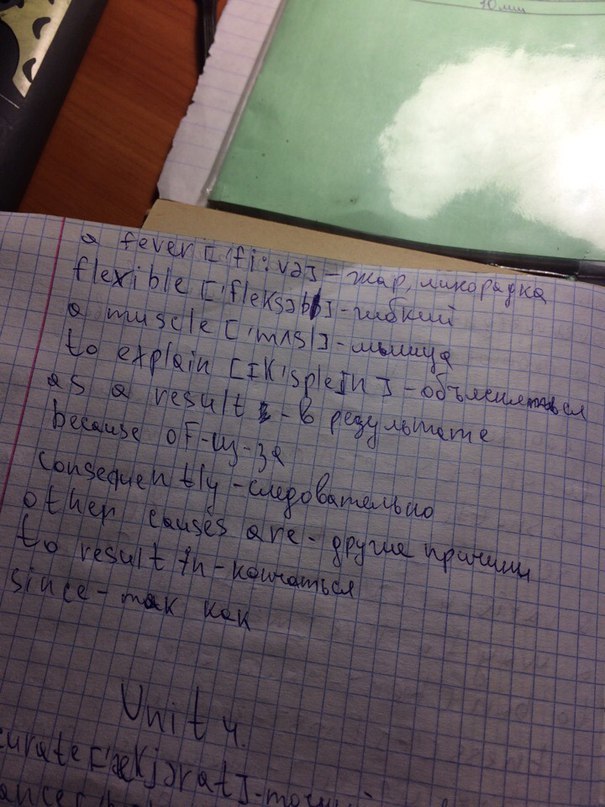 10 мм
a fever ['fi:və] - жар, лихорадка
flexible ['fleksəbl] - гибкий
a muscle ['mʌsl] - мышца
to explain [ɪk'spleɪn] - объясняться
as a result - в результате
because of - из-за
consequently - следовательно
other causes are - другие причины
to result in - кончаться
since - так как
Unit 4.
curate ['ækjərat] - точный